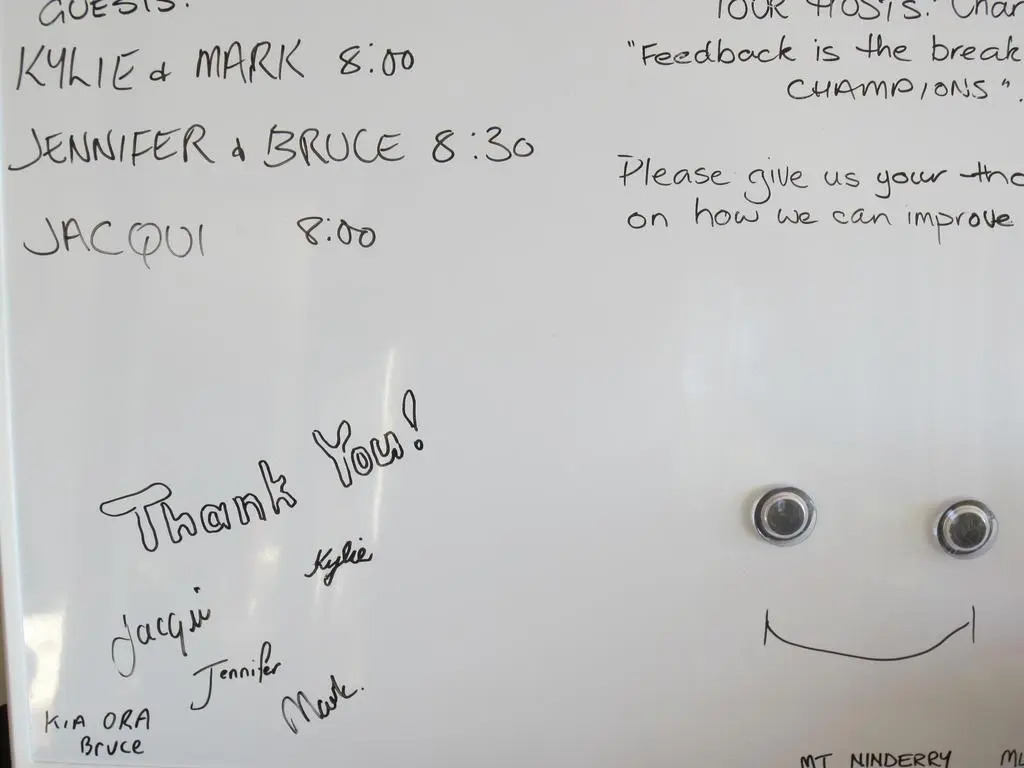 GUESTS:
KYLIE & MARK 8:00
JENNIFER & BRUCE 8:30
JACQUI 8:00
YOUR HOSTS: Char
"Feedback is the break
CHAMPIONS".
Please give us your tho
on how we can improve
Thank You!
Kylie
Jacqui
Jennifer
Mark.
KIA ORA
Bruce
MT NINDERRY